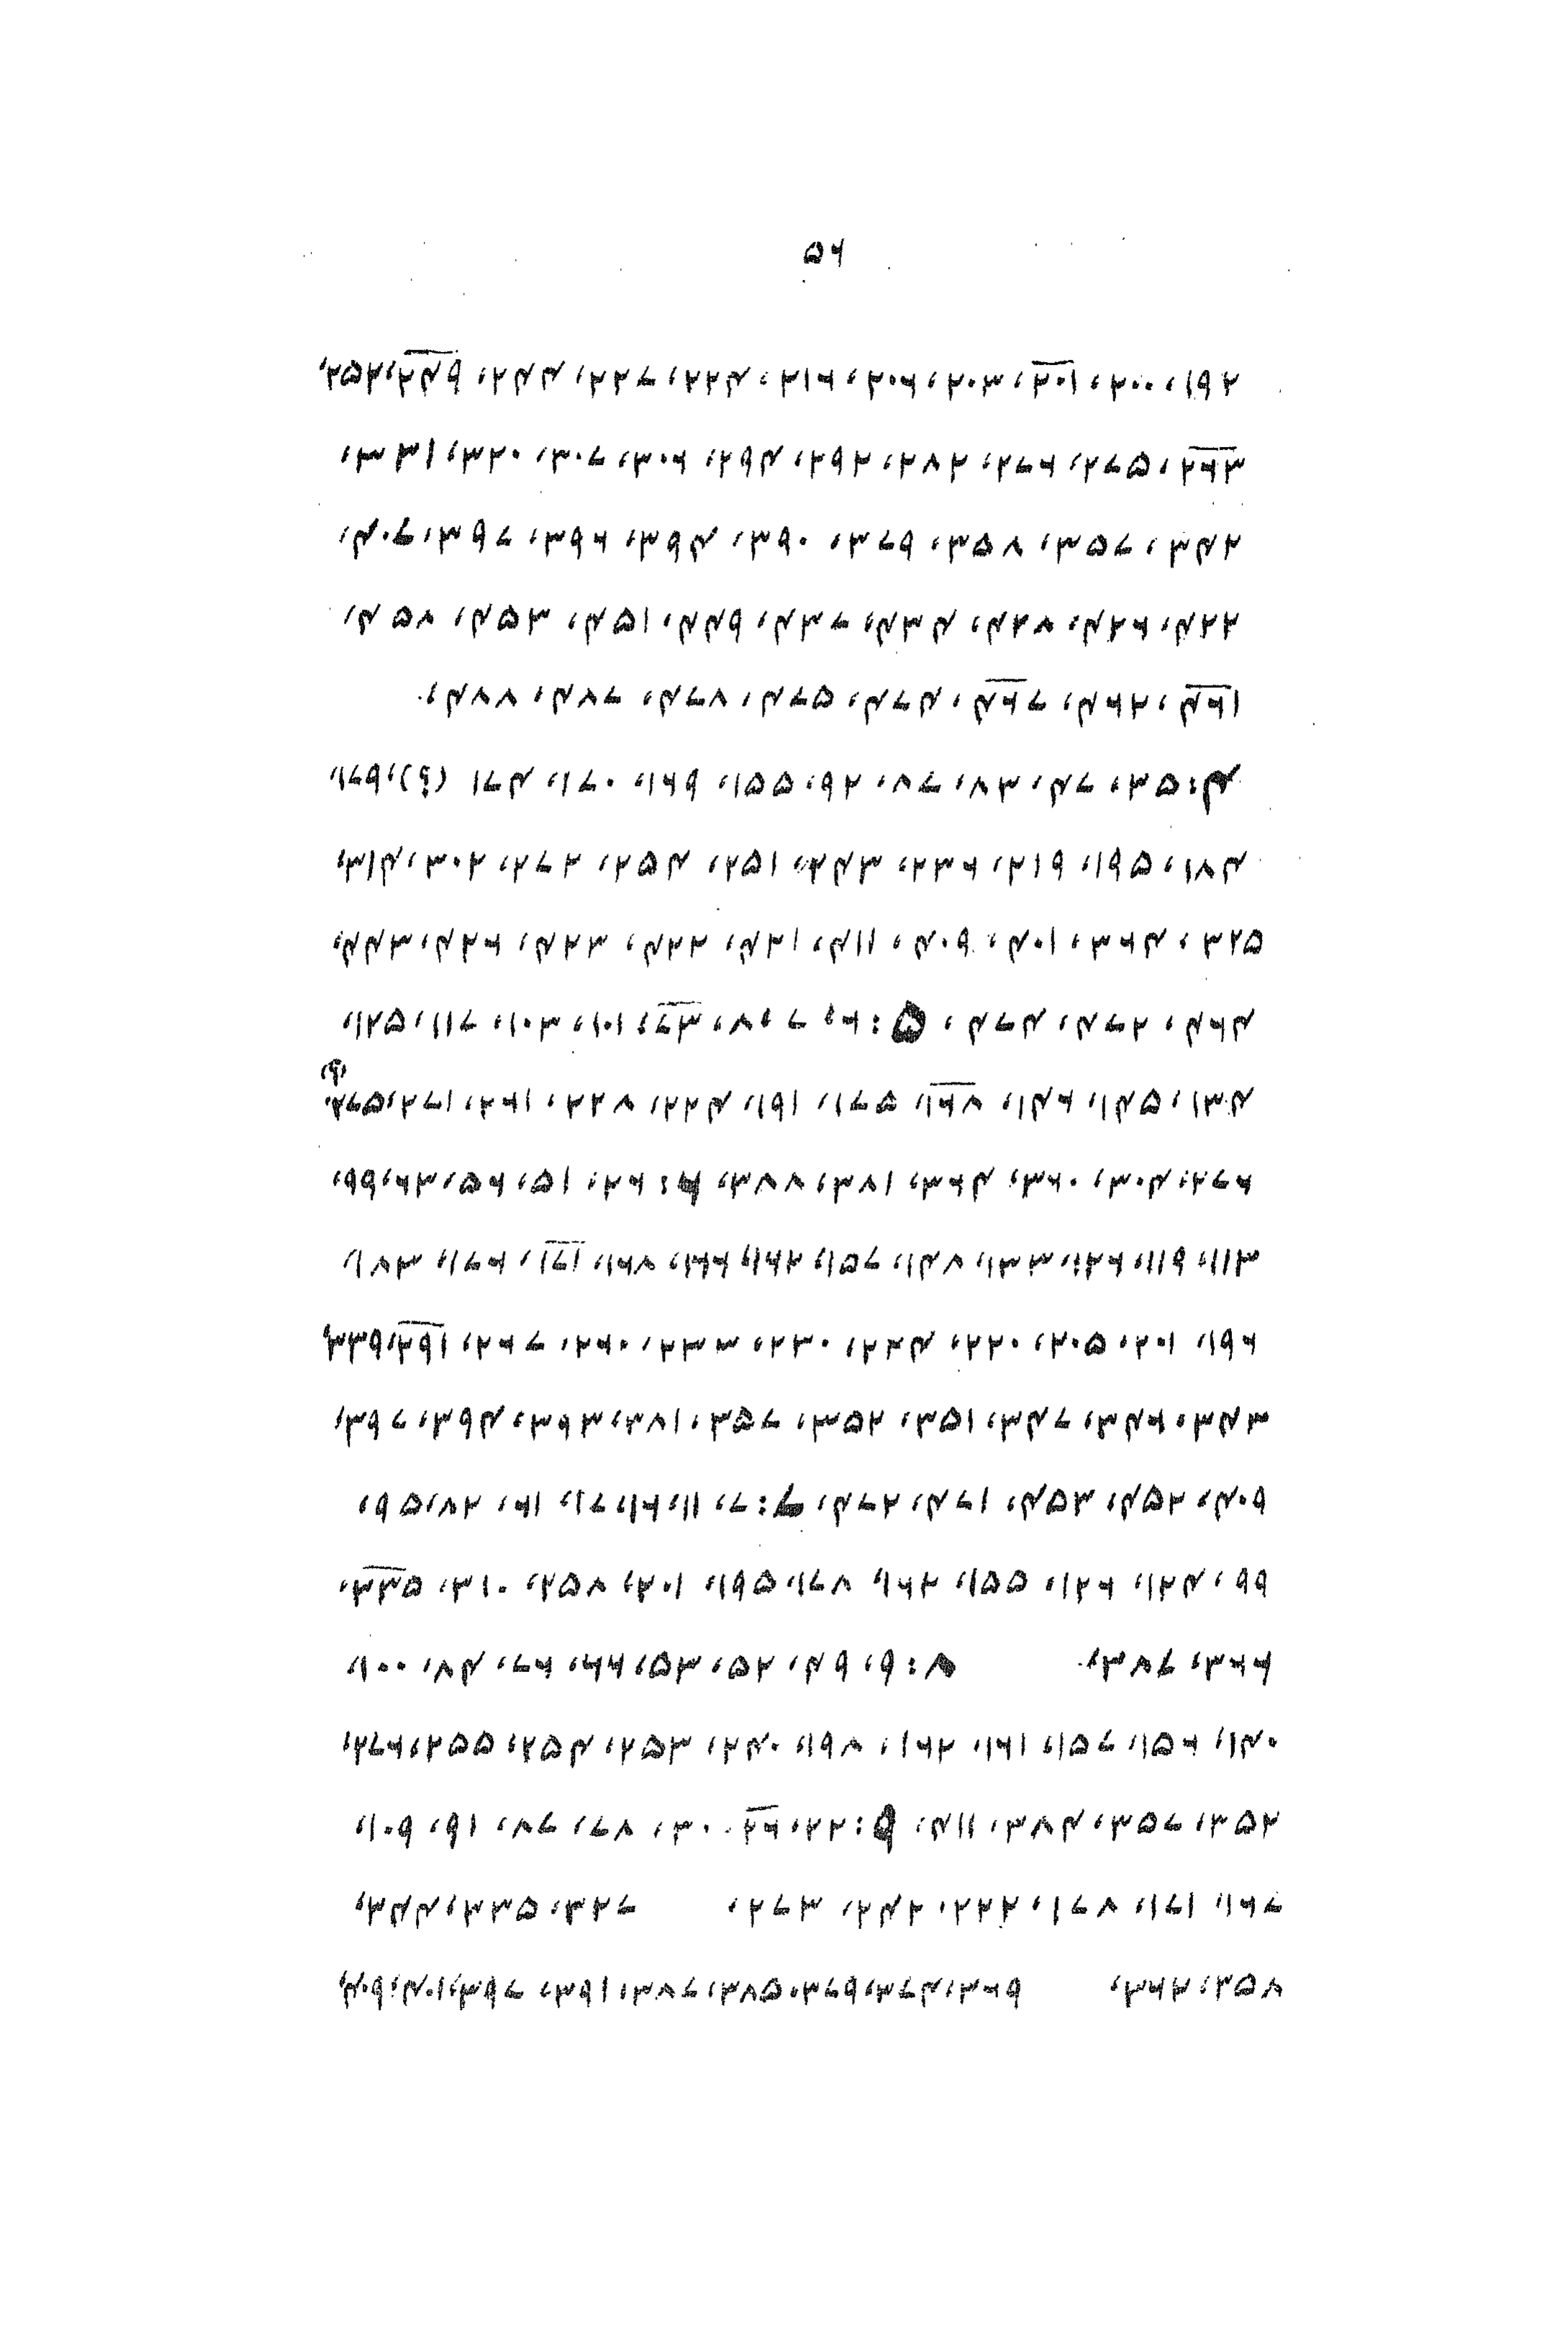 ۵۶
۱۹۲، ۲۰۰، ۲۰۱، ۲۰۳، ۲۰۶، ۲۱۶، ۲۲۴، ۲۲۷، ۲۴۴، ۲۴۹، ۲۵۲،
۲۶۳، ۲۷۵، ۲۷۶، ۲۸۲، ۲۹۲، ۲۹۴، ۳۰۶، ۳۰۷، ۳۲۰، ۳۳۱،
۳۴۲، ۳۵۷، ۳۵۸، ۳۷۹، ۳۹۰، ۳۹۴، ۳۹۶، ۳۹۷، ۴۰۷،
۴۲۲، ۴۲۶، ۴۲۸، ۴۳۴، ۴۳۷، ۴۴۹، ۴۵۱، ۴۵۳، ۴۵۸،
۴۶۱، ۴۶۲، ۴۶۷، ۴۷۴، ۴۷۵، ۴۷۸، ۴۸۷، ۴۸۸،
۴: ۳۵، ۴۷، ۸۳، ۸۷، ۹۲، ۱۵۵، ۱۶۹، ۱۷۰، ۱۷۴ (؟)، ۱۷۹،
۱۸۴، ۱۹۵، ۲۱۹، ۲۳۶، ۲۴۳، ۲۵۱، ۲۵۴، ۲۷۲، ۳۰۲، ۳۱۴،
۳۲۵، ۳۶۴، ۴۰۱، ۴۰۹، ۴۱۱، ۴۲۱، ۴۲۲، ۴۲۳، ۴۲۶، ۴۴۳،
۴۶۴، ۴۷۲، ۴۷۴، ۵: ۶، ۷، ۸، ۷۳، ۱۰۱، ۱۰۳، ۱۱۷، ۱۲۵،
۱۳۴، ۱۴۵، ۱۴۶، ۱۶۸، ۱۷۵، ۱۹۱، ۲۲۴، ۲۲۸، ۲۶۱، ۲۷۱، ۲۷۵ (؟)،
۲۷۶، ۳۰۴، ۳۶۰، ۳۶۴، ۳۸۱، ۳۸۸، ۶: ۲۶، ۵۱، ۵۶، ۶۳، ۹۹،
۱۱۳، ۱۱۹، ۱۲۶، ۱۳۳، ۱۴۸، ۱۵۷، ۱۶۲، ۱۶۶، ۱۶۸، ۱۷۱، ۱۷۶، ۱۸۳،
۱۹۶، ۲۰۱، ۲۰۵، ۲۲۰، ۲۲۴، ۲۳۰، ۲۳۳، ۲۶۰، ۲۶۷، ۲۹۱، ۳۳۹،
۳۴۳، ۳۴۶، ۳۴۷، ۳۵۱، ۳۵۲، ۳۵۷، ۳۸۱، ۳۹۳، ۳۹۴، ۳۹۷،
۴۰۹، ۴۵۲، ۴۵۳، ۴۷۱، ۴۷۲، ۷: ۷، ۱۱، ۱۶، ۱۷، ۶۱، ۸۲، ۹۵،
۹۹، ۱۲۴، ۱۲۶، ۱۵۵، ۱۶۲، ۱۷۸، ۱۹۵، ۲۰۱، ۲۵۸، ۳۱۰، ۳۳۵،
۳۶۶، ۳۸۷، ۸: ۹، ۴۹، ۵۲، ۵۳، ۶۶، ۷۶، ۸۴، ۱۰۰،
۱۴۰، ۱۵۶، ۱۵۷، ۱۶۱، ۱۶۲، ۱۹۸، ۲۴۰، ۲۵۳، ۲۵۴، ۲۵۵، ۲۷۶،
۳۵۲، ۳۵۷، ۳۸۴، ۴۱۱، ۹: ۲۲، ۲۶، ۳۰، ۷۸، ۸۷، ۹۱، ۱۰۹،
۱۶۷، ۱۷۱، ۱۷۸، ۲۲۲، ۲۴۲، ۲۷۳، ۳۲۷، ۳۳۵، ۳۴۴،
۳۵۸، ۳۶۲، ۳۶۹، ۳۷۴، ۳۷۹، ۳۸۵، ۳۸۷، ۳۹۱، ۳۹۷، ۴۰۱، ۴۰۹،